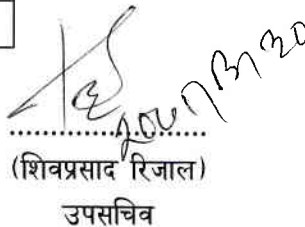 (शिवप्रसाद रिजाल)
उपसचिव